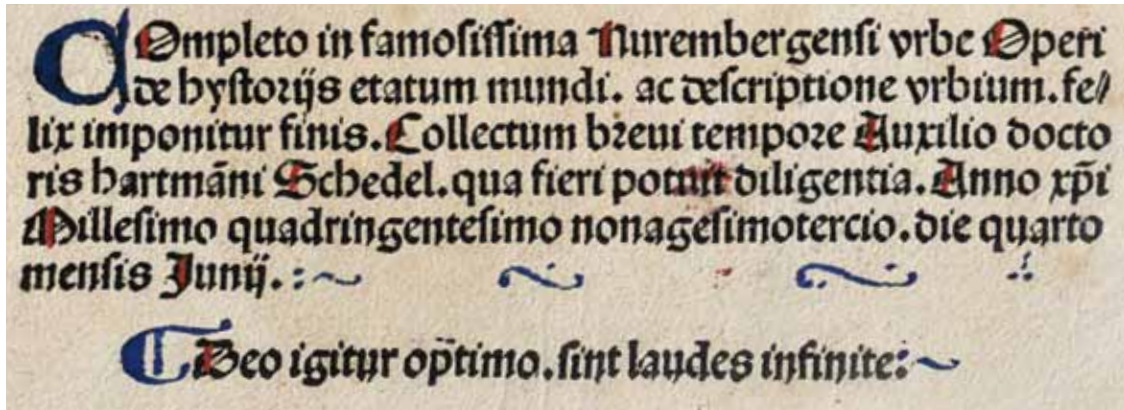 COmpleto in famosissima Nurembergensi vrbe Operi
de hystorijs etatum mundi. ac descriptione vrbium. fe/
lix imponitur finis. Collectum breui tempore Auxilio docto
ris hartmāni Schedel. qua fieri potuit diligentia. Anno xp̄i
Millesimo quadringentesimo nonagesimotercio. die quarto
mensis Junij.
Deo igitur op̄timo. sint laudes infinite: